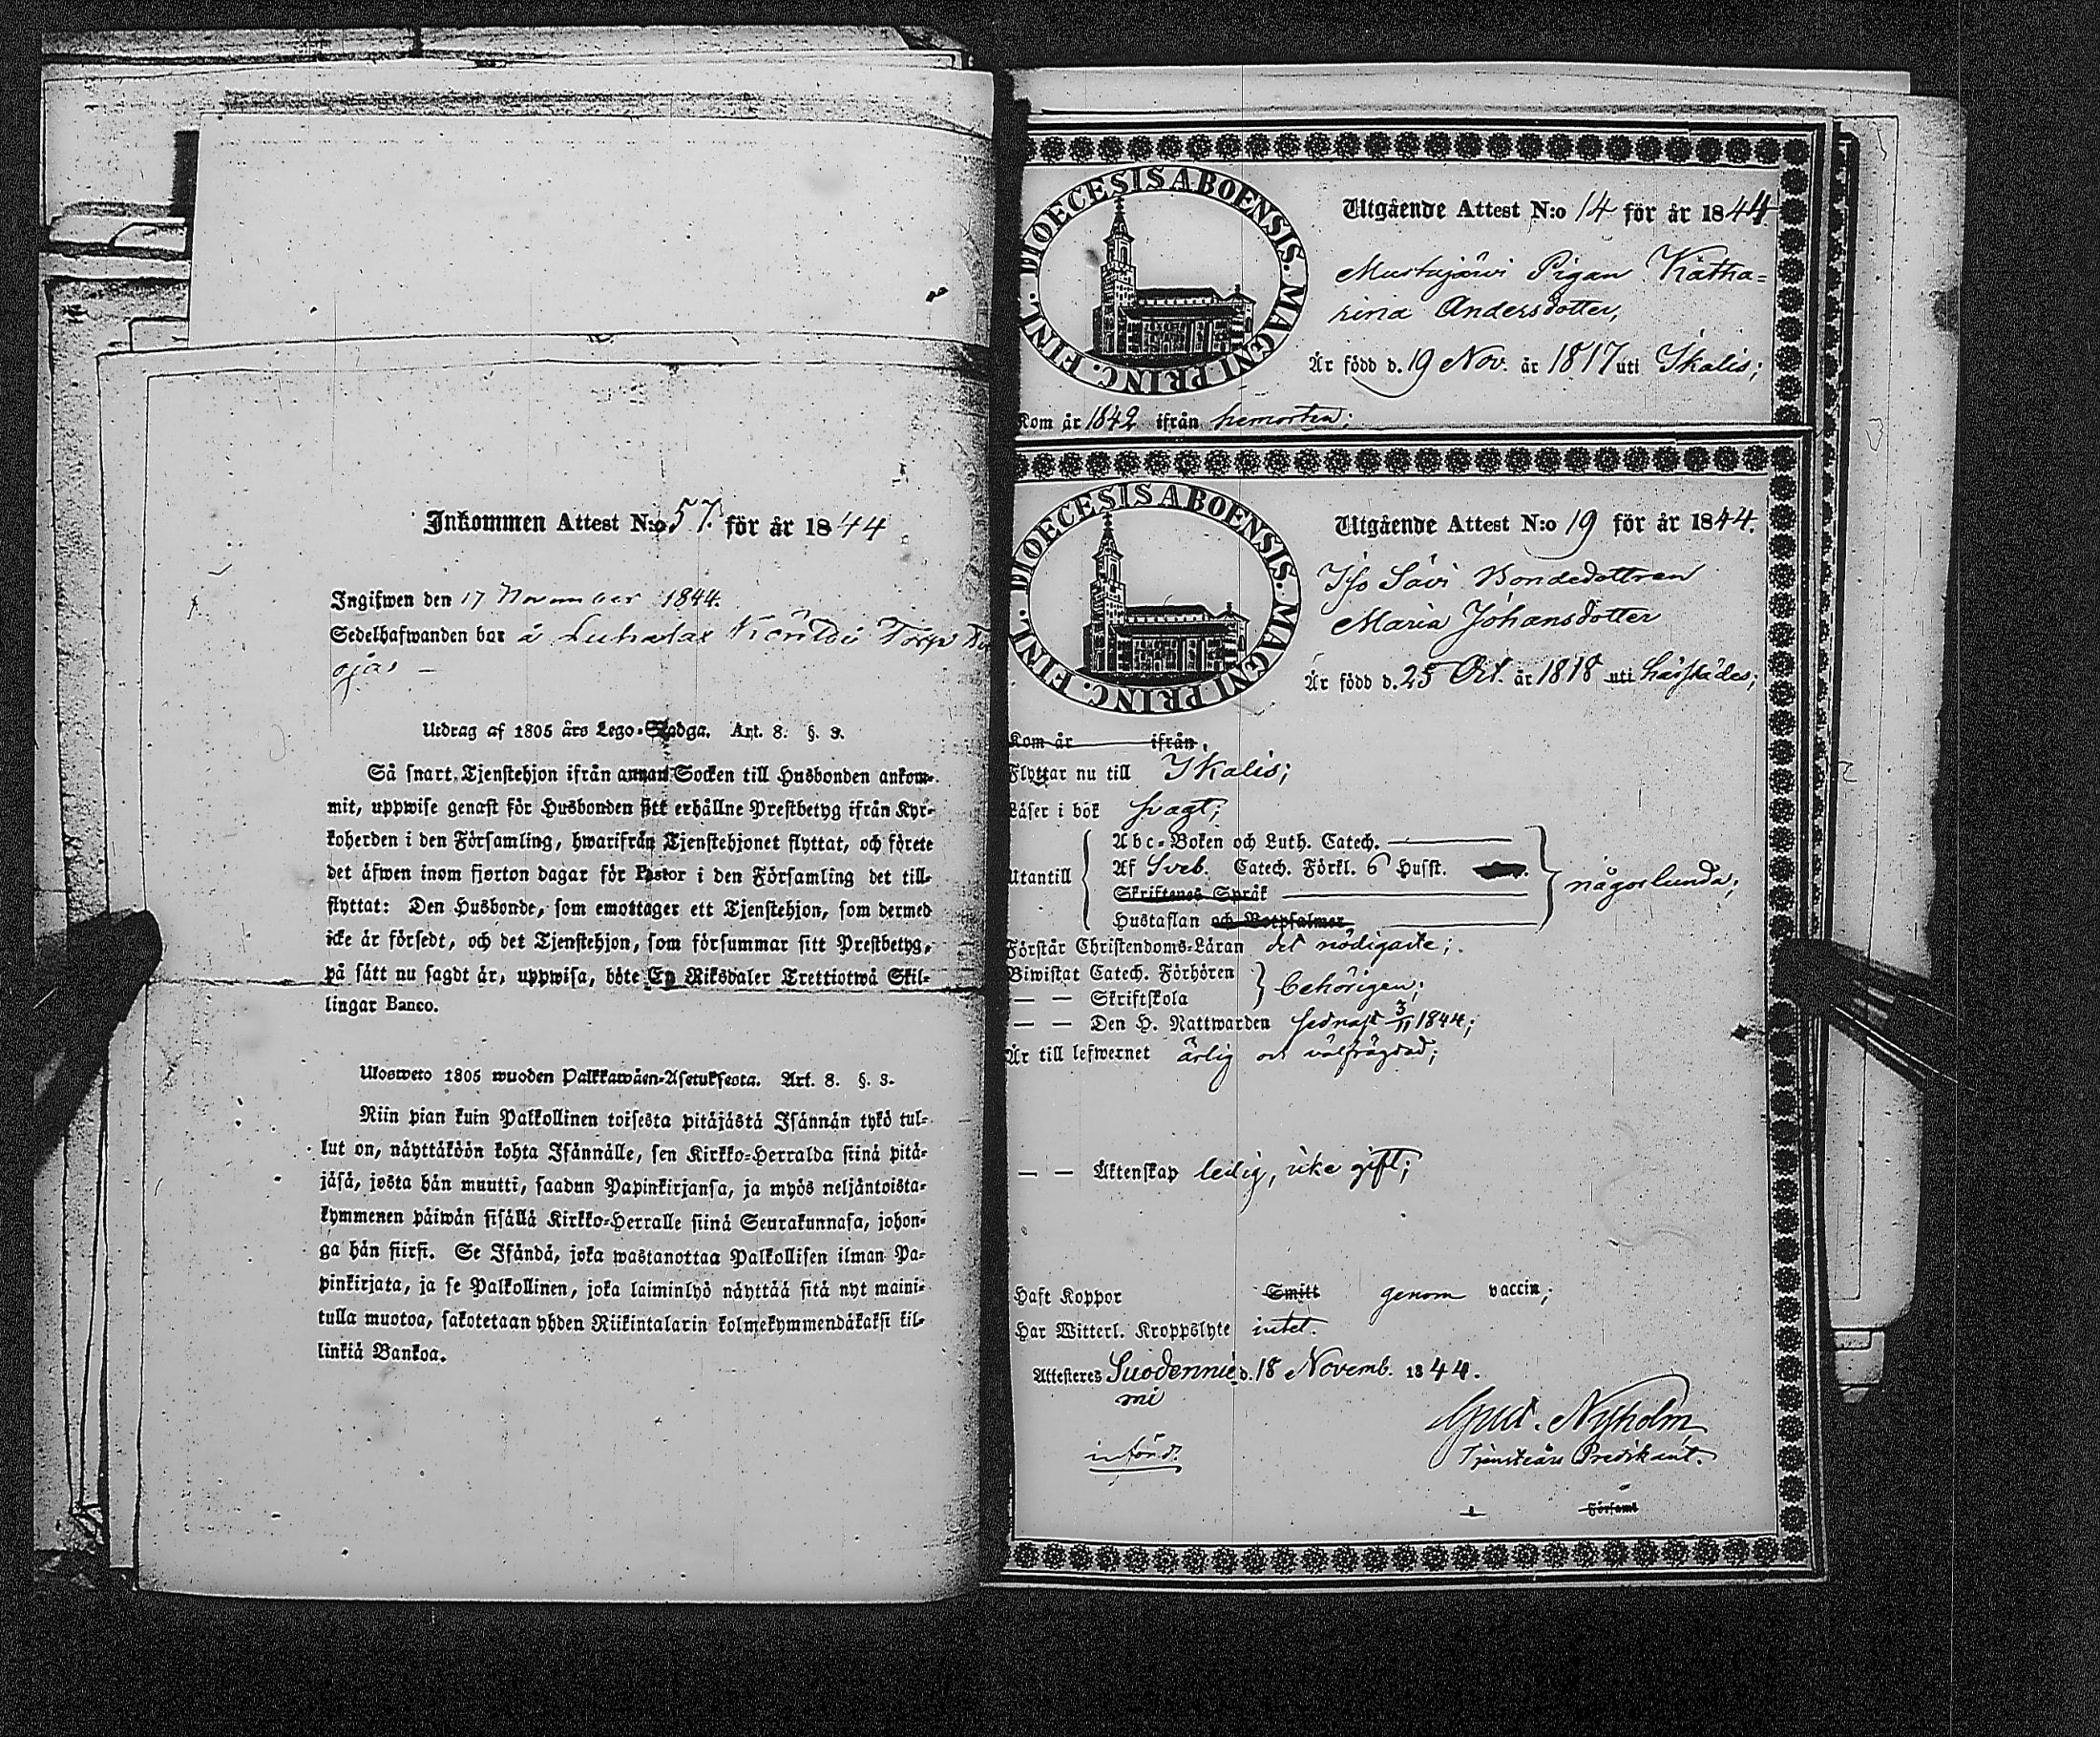 Inkommen Attest N:o 57. för år 1844
Ingifwen den 17 November 1844.
Sedelhafwanden bor å Luhalax Torp
ojas –
Utdrag af 1805 års Lego-Stadga. Art. 8. §. 3.
Så snart Tjenstehjon ifrån annan Socken till Husbonden ankom-
mit, uppwise genast för Husbonden sitt erhållne Prestbetyg ifrån Kyr-
koherden i den Församling, hwarifrån Tjenstehjonet flyttat, och förete
det äfwen inom fjorton dagar för Pastor i den Församling det till-
flyttat: Den Husbonde, som emottager ett Tjenstehjon, som dermed
icke är försedt, och det Tjenstehjon, som försummar sitt Prestbetyg,
på sätt nu sagdt är, uppwisa, böte En Riksdaler Trettiotwå Skil-
lingar Banco.
Ulosweto 1805 wuoden Palkkawäen-Asetuksesta. Art. 8. §. 3.
Niin pian kuin Palkollinen toisesta pitäjästä Isännän tykö tul-
lut on, näyttäköön kohta Isännälle, sen Kirkko-Herralda siinä pitä-
jäsä, josta hän muutti, saadun Papinkirjansa, ja myös neljäntoista-
kymmenen päiwän sisällä Kirkko-Herralle siinä Seurakunnasa, johon-
ga hän siirsi. Se Isändä, joka wastanottaa Palkollisen ilman Pa-
pinkirjata, ja se Palkollinen, joka laiminlyö näyttää sitä nyt maini-
tulla muotoa, sakotetaan yhden Riikintalarin kolmekymmendäkaksi kil-
linkiä Bankoa.
DIOECESIS ABOENSIS. MAGNI PRINC. FINL.
Utgående Attest N:o 14 för år 1844
Mustajärvi Pigan Katha-
rina Andersdotter,
Är född d. 19 Nov. år 1817 uti Ikalis;
Kom år 1842 ifrån hemorten;
DIOECESIS ABOENSIS. MAGNI PRINC. FINL.
Utgående Attest N:o 19 för år 1844.
Iso Sävi Bondedottren
Maria Johansdotter
Är född d. 25 Oct. år 1818 uti härstädes;
Kom år ifrån
Flyttar nu till Ikalis;
Läser i bok svagt;
Utantill
Abc-Boken och Luth. Catech.
Af Sveb. Catech. Förkl. 6 Husst.
Skriftenes Språk
Hustaflan och Botpsalmer
någorlunda;
Förstår Christendoms-Läran det nödigaste;
Biwistat Catech. Förhören
— — Skriftskola
behörigen;
— — Den H. Nattwarden sednast 3/11 1844;
Är till lefwernet ärlig och välfrägdad;
— — Äktenskap ledig, icke gift;
Haft Koppor Smitt genom vaccin;
Har Witterl. Kroppslyte intet.
Attesteres Suodennie- d. 18 Novemb. 1844.
mi
Gust. Nyholm
Tjensteårs Predikant.
införd.
Församl